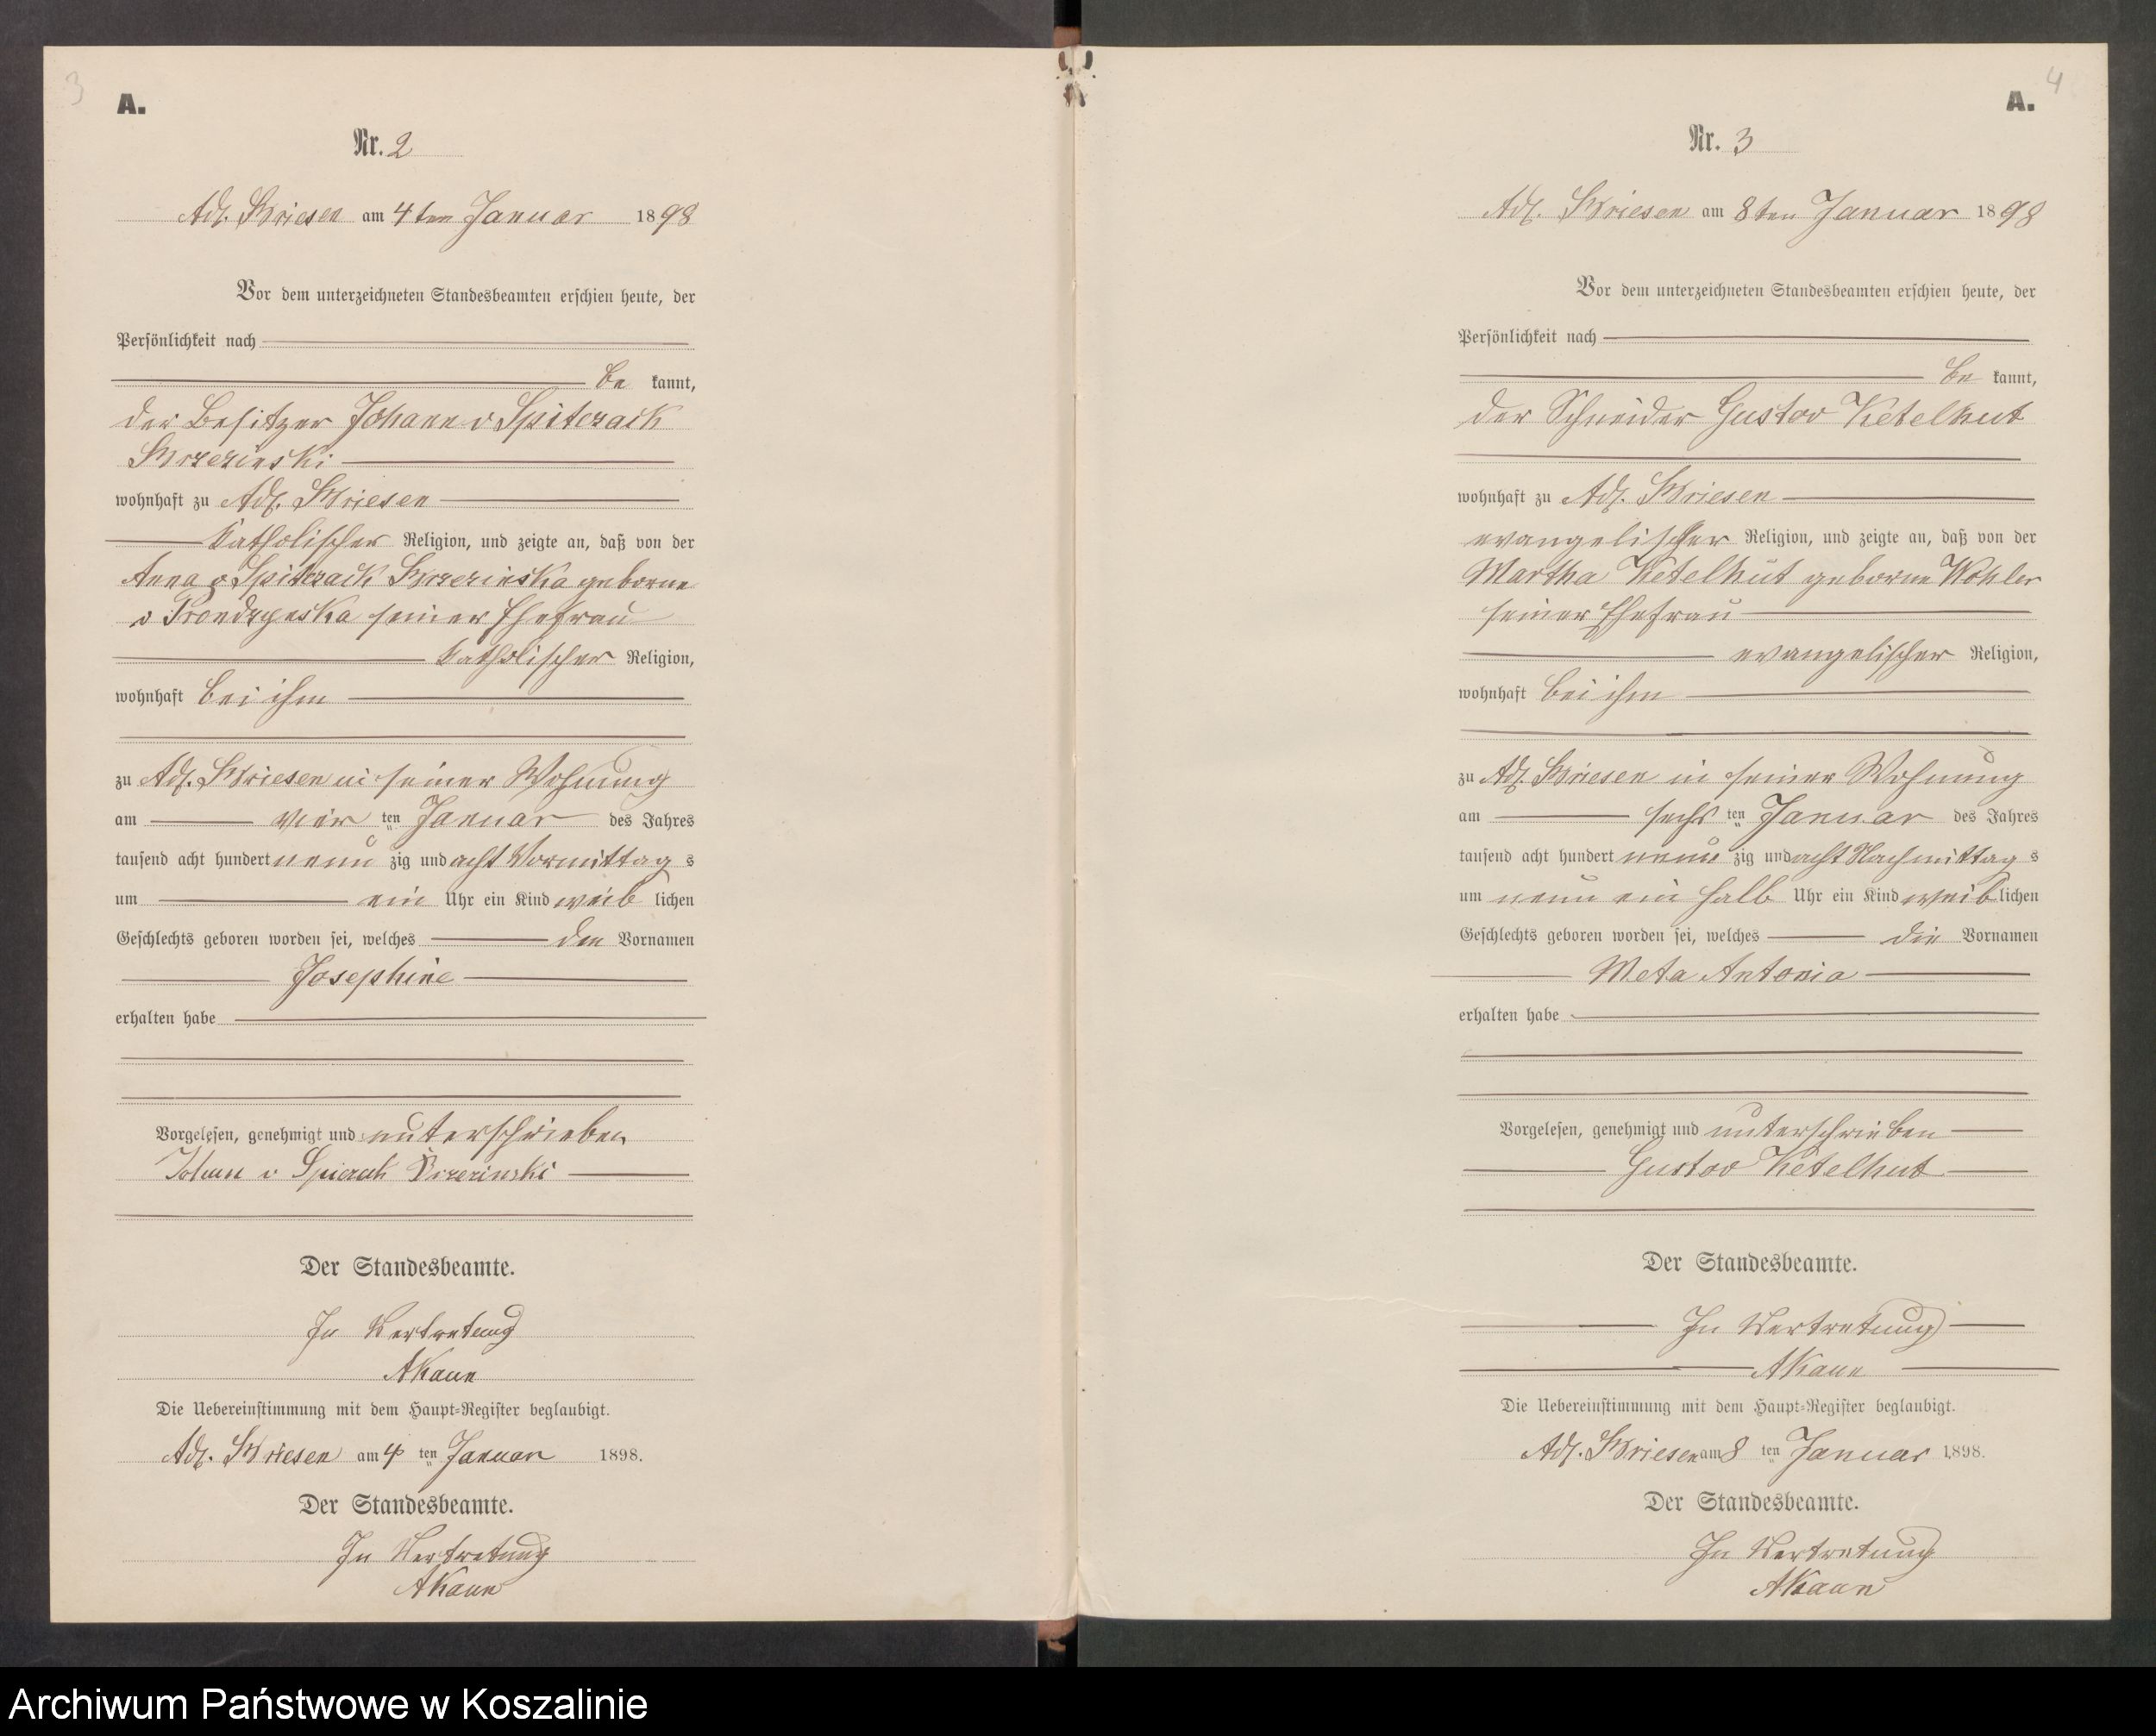 3
A.
Nr. 2
Adl. Briesen am 4ten Januar 1898
Vor dem unterzeichneten Standesbeamten erschien heute, der
Persönlichkeit nach
be kannt,
der Besitzer Johann v Spiczack
Brzezinski
wohnhaft zu Adl. Briesen
katholischer Religion, und zeigte an, daß von der
Anna v Spiczack Brzezinska geborne
v Prondzynska seiner Ehefrau
katholischer Religion,
wohnhaft bei ihm
zu Adl. Briesen in seiner Wohnung
am vier ten Januar des Jahres
tausend acht hundert neun zig und acht Vormittag s
um ein Uhr ein Kind weib lichen
Geschlechts geboren worden sei, welches den Vornamen
Josephine
erhalten habe
Vorgelesen, genehmigt und unterschrieben
Johann v Brzezinski
Der Standesbeamte.
In Vertretung
AKaun
Die Uebereinstimmung mit dem Haupt-Register beglaubigt.
Adl. Briesen am 4 ten Januar 1898.
Der Standesbeamte.
In Vertretung
AKaun
4
A.
Nr. 3
Adl. Briesen am 8ten Januar 1898
Vor dem unterzeichneten Standesbeamten erschien heute, der
Persönlichkeit nach
be kannt,
der Schneider Gustav Ketelhut
wohnhaft zu Adl. Briesen
evangelischer Religion, und zeigte an, daß von der
Martha Ketelhut geborne Wohler
seiner Ehefrau
evangelischer Religion,
wohnhaft bei ihm
zu Adl. Briesen in seiner Wohnung
am sechs ten Januar des Jahres
tausend acht hundert neun zig und acht Nachmittag s
um neun ein halb Uhr ein Kind weib lichen
Geschlechts geboren worden sei, welches die Vornamen
Meta Antonia
erhalten habe
Vorgelesen, genehmigt und unterschrieben
Gustav Ketelhut
Der Standesbeamte.
In Vertretung
AKaun
Die Uebereinstimmung mit dem Haupt-Register beglaubigt.
Adl. Briesen am 8 ten Januar 1898.
Der Standesbeamte.
In Vertretung
AKaun
Archiwum Państwowe w Koszalinie